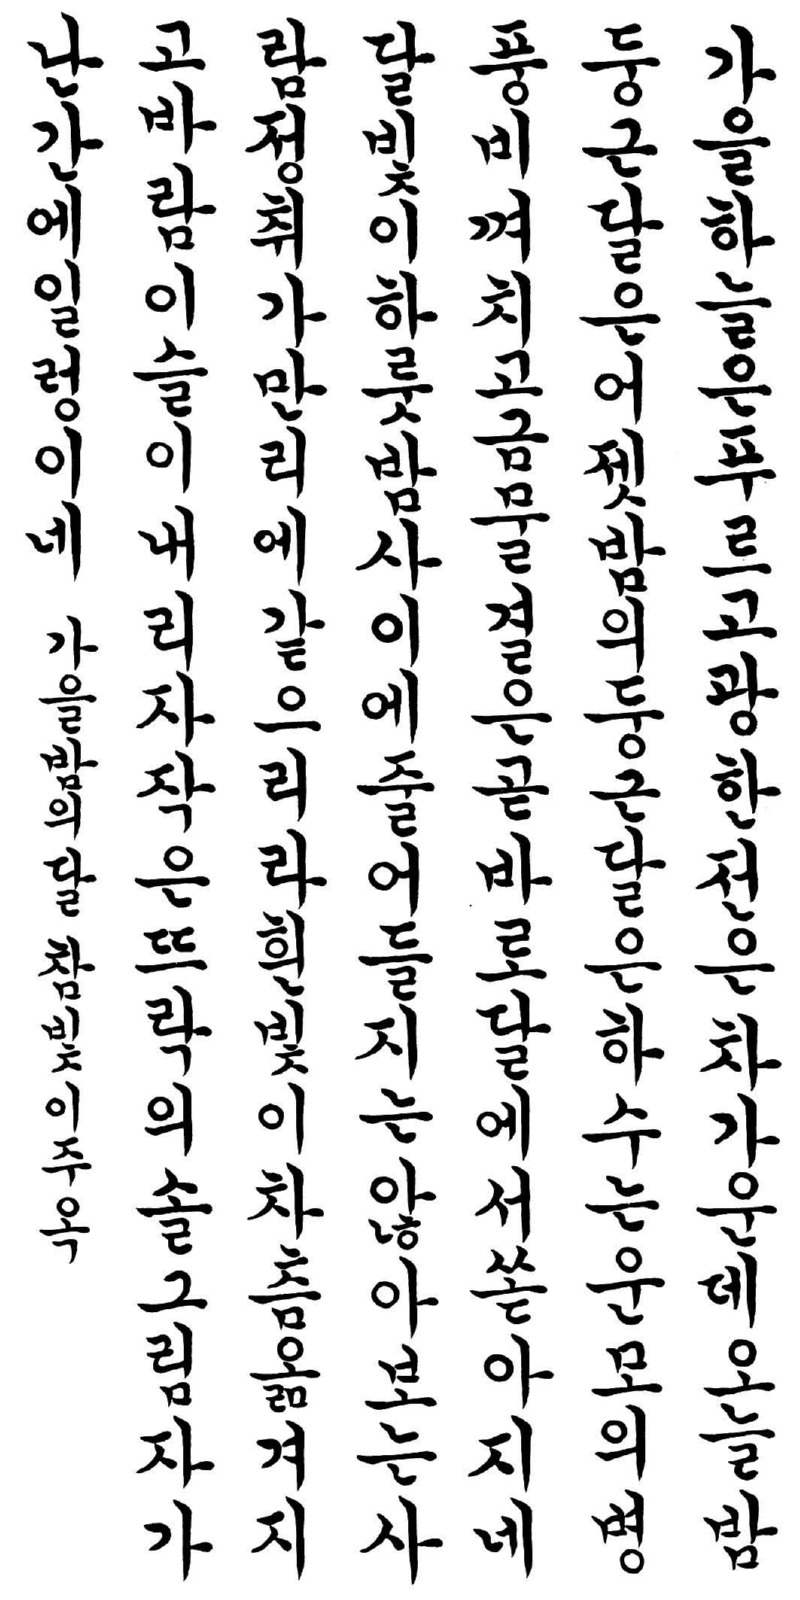 가을하늘은푸르고광한전은차가운데오늘밤
둥근달은어젯밤의둥근달은하수는운모의병
풍비껴치고금물결은곧바로달에서쏟아지네
달빛이하룻밤사이에줄어들지는않아보는사
람정취가만리에같으리라흰빛이차츰옮겨지
고바람이슬이내리자작은뜨락의솔그림자가
난간에일렁이네 가을밤의달 참빛이주옥